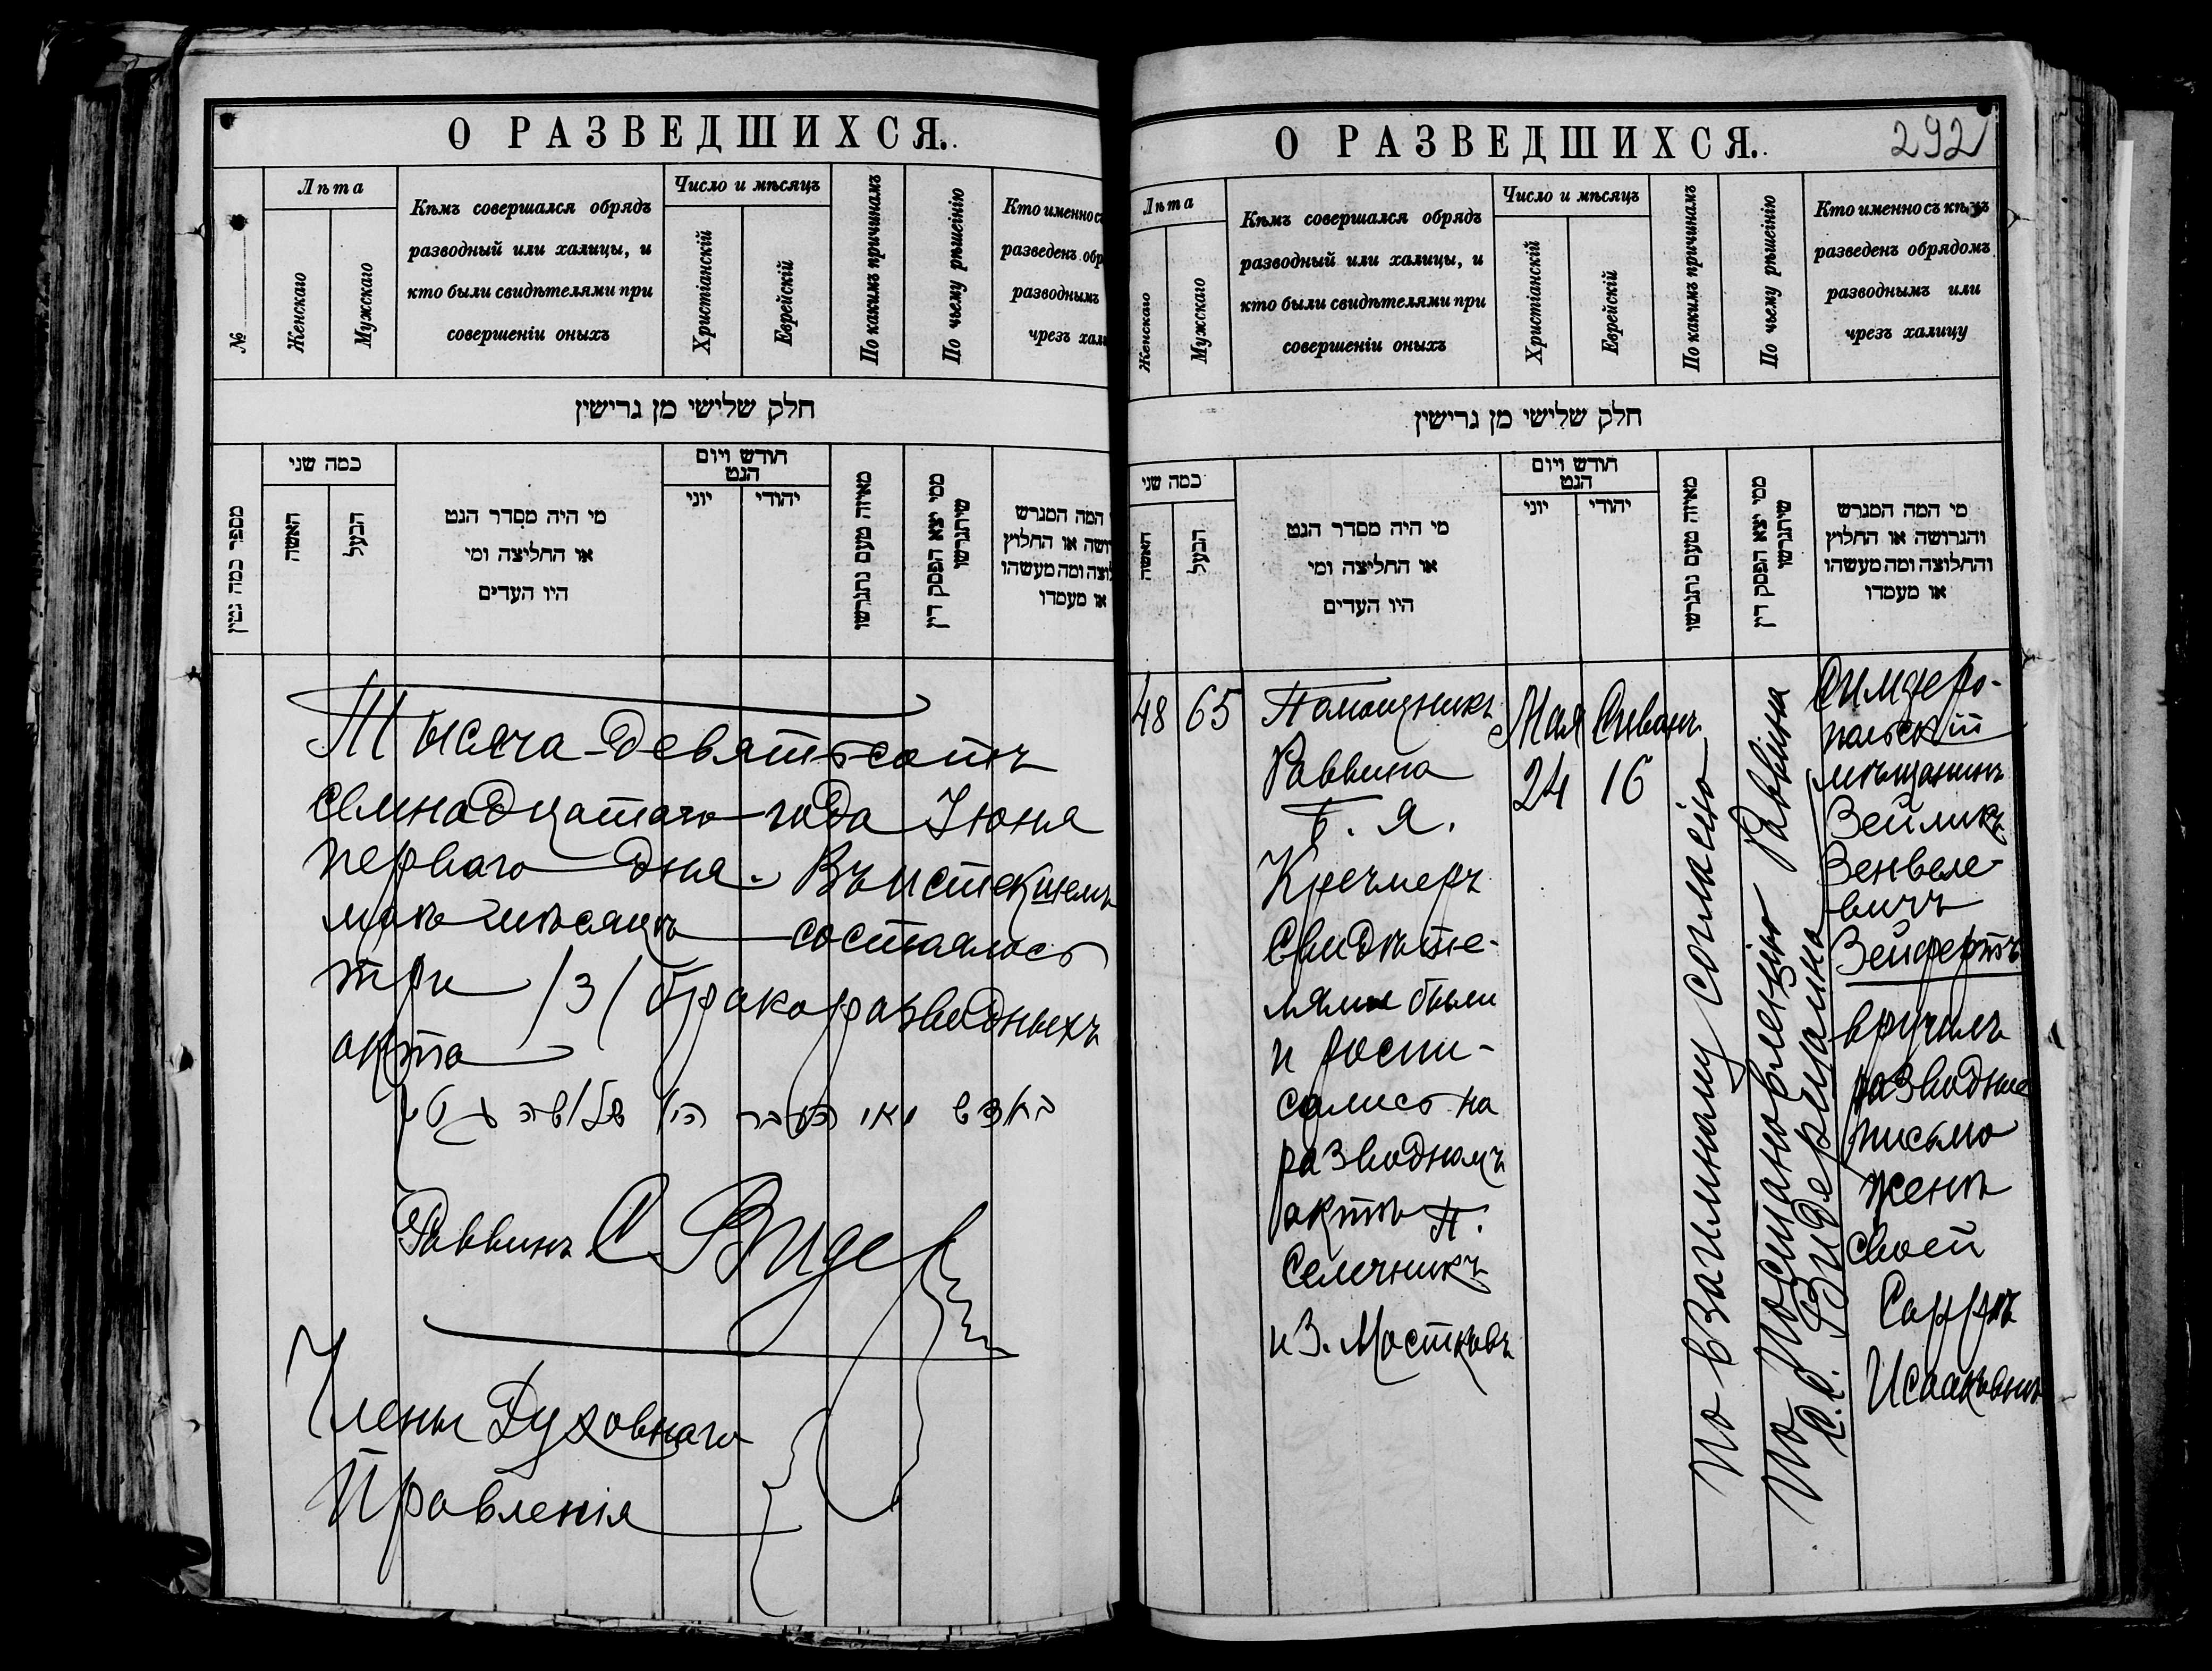 О РАЗВЕДШИХСЯ.
№
Лѣта
Женскаго
Мужскаго
Кѣмъ совершался обрядъ
разводный или халицы, и
кто были свидѣтелями при
совершеніи оныхъ
Число и мѣсяцъ
Христіанскій
Еврейскій
По какимъ причинамъ
По чьему рѣшеінію
Кто именно съ
разведенъ обр
разводнымъ
чрезъ хали
חלק שלישי מן גרישין
מספר כמה גטין
כמה שני
האשה
הבעל
מי היה מסדר הגט
או החליצה ומי
היו העדים
חודש ויום
הגט
יוני
יהודי
מאיזה טעם נתגרשו
ממי יצא הפסק דין
שיתגרשו
המה המגרש
ושה או החלוץ
לוצה ומה מעשהו
או מעמדו
Тысяча девятьсотъ
семнадцатаго года Іюня
перваго дня. Въ истекшемъ
маѣ мѣсяцѣ состоялось
три /3/ бракоразводныхъ
акта
בחדש מאי העבר היו שלושה גטין
Раввинъ С Видер
Члены Духовнаго
Правленія
О РАЗВЕДШИХСЯ.
292
Лѣта
Женскаго
Мужскаго
Кѣмъ совершался обрядъ
разводный или халицы, и
кто были свидѣтелями при
совершеніи оныхъ
Число и мѣсяцъ
Христіанскій
Еврейскій
По какимъ причинамъ
По чьему рѣшеінію
Кто именно съ кѣмъ
разведенъ обрядомъ
разводнымъ или
чрезъ халицу
חלק שלישי מן גרישין
כמה שני
האשה
הבעל
מי היה מסדר הגט
או החליצה ומי
היו העדים
חודש ויום
הגט
יוני
יהודי
מאיזה טעם נתגרשו
ממי יצא הפסק דין
שיתגרשו
מי המה המגרש
והגרושה או החלוץ
והחלוצה ומה מעשהו
או מעמדו
48
65
Помощникъ
Раввина
Б. Я.
Кречмеръ
Свидѣте-
лями были
и роспи-
сались на
разводномъ
актѣ П.
Семечникъ
и З. Мостковъ
Мая
24
Сиванъ
16
По взаимному согласію
По постановленію Раввина
С. С. Видермана
Симферо-
польскій
мѣщанинъ
Зейликъ
Зенвеле-
вичъ
Зейфертъ
вручилъ
разводное
письмо
женѣ
своей
Саррѣ
Исааковнѣ